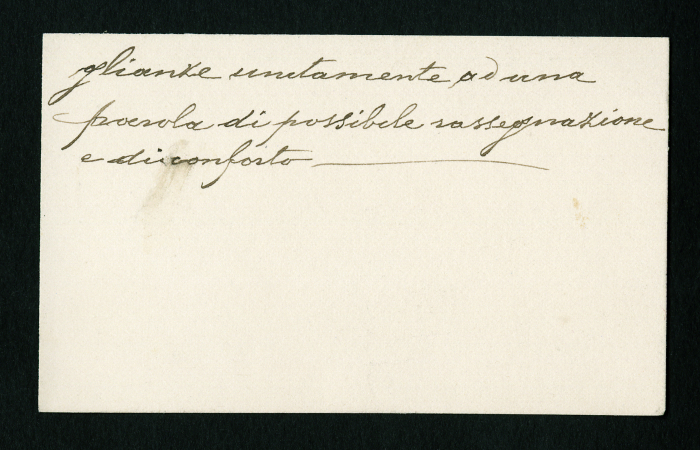 glianze unitamente ad una
parola di possibile rassegnazione
e di conforto